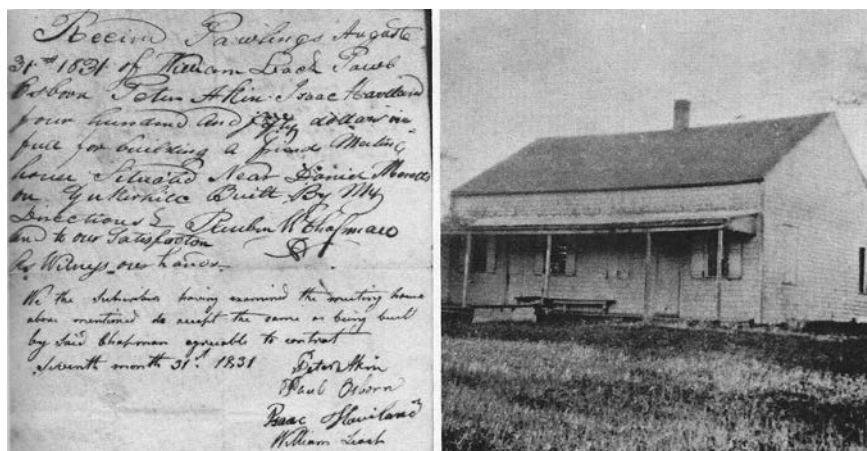 Received Pawlings Auguste
31st 1831 of William Leach Pawl
Osborn Peter Akin Isaac Haviland
four hundred and fifty dollars in
full for building a friend Meeting
house Situated Near Daniel
on Qukerhill Built By My
Directions & Reuben W Chapman
and to our Satisfaction
As Witness our hands
We the Subscribers having examined the meeting house
above mentioned do accept the same as being built
by said Chapman agreeable to contract
Seventh month 31st 1831
Peter Akin
Paul Osborn
Isaac Haviland
William Leach